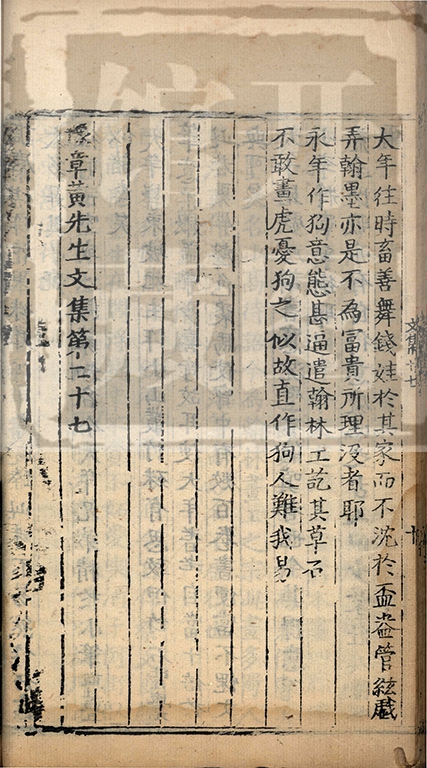 大年往時畜善舞錢娃於其家而不沈於盃盎管絃戲
弄翰墨亦是不為富貴所理沒者耶
永年作狗意態甚逼遣翰林工訖其草石
不敢畫虎憂狗之似故直作狗人難我易
豫章黃先生文集第二十七
十